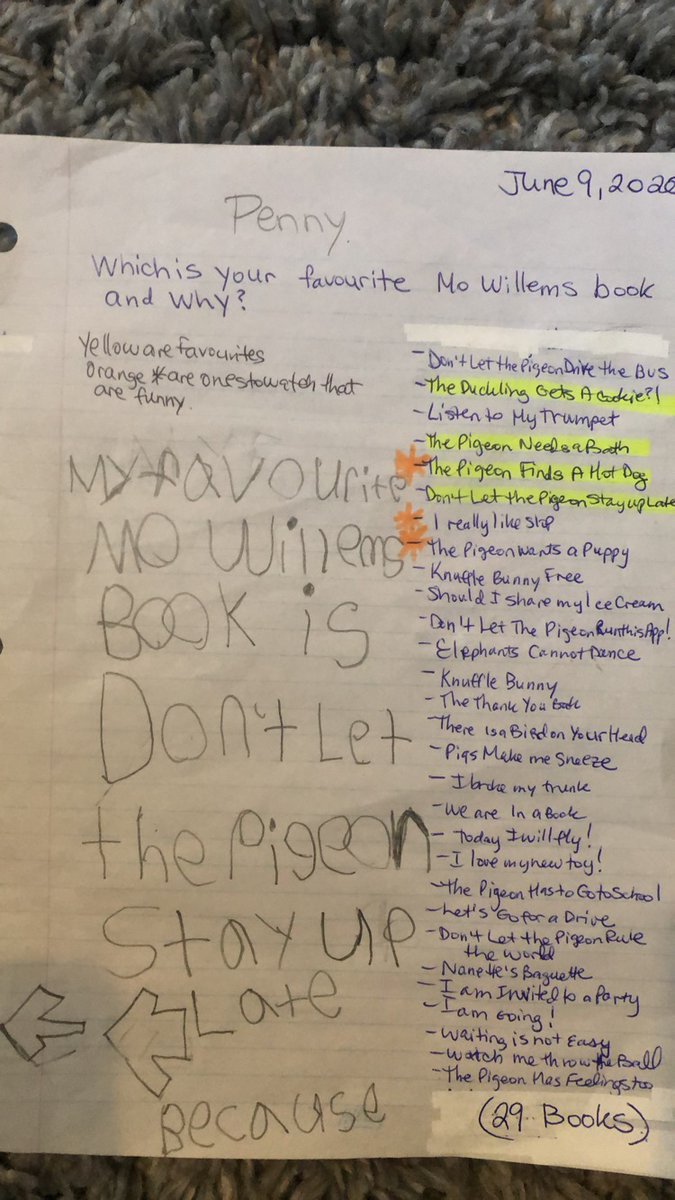 June 9, 2020
Penny
Which is your favourite Mo Willems book
and why?
Yellow are favourites
Orange * are ones to watch that
are funny.
My favourite
Mo Willems
Book is
Don't Let
the Pigeon
Stay up
Late
Because
- Don't Let the Pigeon Drive the Bus
- The Duckling Gets A Cookie?!
- Listen to My Trumpet
- The Pigeon Needs a Bath
* - The Pigeon Finds A Hot Dog
- Don't Let the Pigeon Stay up Late
* - I really like slop
* - The Pigeon wants a Puppy
- Knuffle Bunny Free
- Should I share my Ice Cream
- Don't Let The Pigeon Run this App!
- Elephants Cannot Dance
- Knuffle Bunny
- The Thank You Book
- There Is a Bird on Your Head
- Pigs Make me Sneeze
- I broke my trunk
- We are In a Book
- Today I will fly!
- I love my new toy!
- The Pigeon Has to Go to School
- Let's Go for a Drive
- Don't Let the Pigeon Rule
the World
- Nanette's Baguette
- I am Invited to a Party
- I am Going!
- Waiting is not Easy
- Watch me throw the Ball
- The Pigeon Has Feelings too
(29 Books)